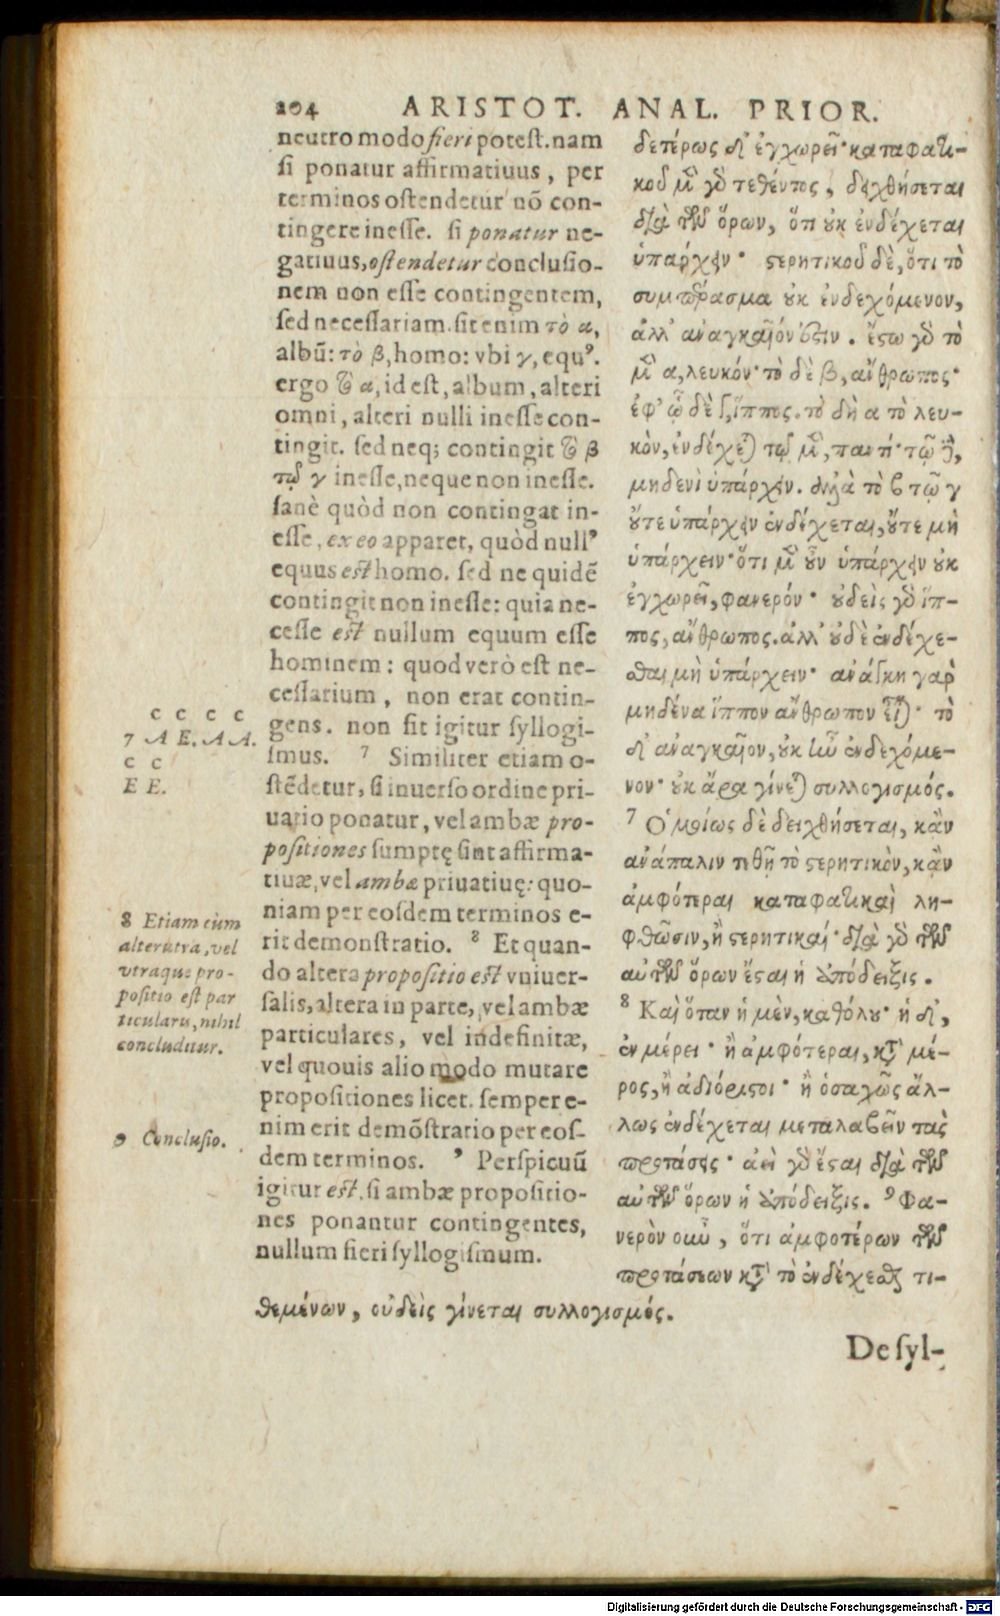 204 ARISTOT. ANAL. PRIOR.
neutro modo fieri potest. nam
si ponatur affirmatiuus, per
terminos ostendetur nō con-
tingere inesse. si ponatur ne-
gatiuus, ostendetur conclusio-
nem non esse contingentem,
sed necessariam. sit enim τὸ α,
albū: τὸ β, homo: vbi γ, equꝰ.
ergo τὸ α, id est, album, alteri
omni, alteri nulli inesse con-
tingit. sed neq; contingit τὸ β
τῷ γ inesse, neque non inesse.
sanè quòd non contingat in-
esse, ex eo apparet, quòd nullꝰ
equus est homo. sed ne quidē
contingit non inesse: quia ne-
cesse est nullum equum esse
hominem: quod verò est ne-
cessarium, non erat contin-
gens. non fit igitur syllogi-
smus. 7 Similiter etiam o-
stēdetur, si inuerso ordine pri-
uatio ponatur, vel ambæ pro-
positiones sumptę sint affirma-
tiuæ, vel ambæ priuatiuę: quo-
niam per eosdem terminos e-
rit demonstratio. 8 Et quan-
do altera propositio est vniuer-
salis, altera in parte, vel ambæ
particulares, vel indefinitæ,
vel quouis alio modo mutare
propositiones licet. semper e-
nim erit demōstratio per eos-
dem terminos. 9 Perspicuū
igitur est, si ambæ propositio-
nes ponantur contingentes,
nullum fieri syllogismum.
c c c c
7 A E. A A.
c c
E E.
8 Etiam cùm
alterutra, vel
vtraque pro-
positio est par
ticularis, nihil
concluditur.
9 Conclusio.
δετέρως δ' ἐγχωρεῖ· καταφατι-
κοῦ μὲν γὸ τεθέντος, δειχθήσεται
διὰ τῶν ὅρων, ὅτι οὐκ ἐνδέχεται
ὑπάρχειν· στερητικοῦ δὲ, ὅτι τὸ
συμπέρασμα οὐκ ἐνδεχόμενον,
ἀλλ' ἀναγκαῖόν ἐστιν. ἔστω γὸ τὸ
μὲν α, λευκόν· τὸ δὲ β, ἄνθρωπος·
ἐφ' ᾧ δὲ γ, ἵππος. τὸ δὴ α τὸ λευ-
κὸν, ἐνδέχεται τῷ μὲν, παντί· τῷ δὲ,
μηδενὶ ὑπάρχειν. ἀλλὰ τὸ β τῷ γ
οὔτε ὑπάρχειν ἐνδέχεται, οὔτε μὴ
ὑπάρχειν· ὅτι μὲν οὖν ὑπάρχειν οὐκ
ἐγχωρεῖ, φανερόν· οὐδεὶς γὸ ἵπ-
πος, ἄνθρωπος. ἀλλ' οὐδὲ ἐνδέχε-
σθαι μὴ ὑπάρχειν· ἀνάγκη γαρ
μηδένα ἵππον ἄνθρωπον εἶναι· τὸ
δ' ἀναγκαῖον, οὐκ ἦν ἐνδεχόμε-
νον· οὐκ ἄρα γίνεται συλλογισμός.
7 Ὁμοίως δὲ δειχθήσεται, κἂν
ἀνάπαλιν τιθῇ τὸ στερητικὸν, κἂν
ἀμφότεραι καταφατικαὶ λη-
φθῶσιν, ἢ στερητικαί· διὰ γὸ τῶν
αὐτῶν ὅρων ἔσται ἡ ἀπόδειξις.
8 Καὶ ὅταν ἡ μὲν, καθόλου· ἡ δ',
ἐν μέρει· ἢ ἀμφότεραι, κτ' μέ-
ρος, ἢ ἀδιόριστοι· ἢ ὁσαχῶς ἄλ-
λως ἐνδέχεται μεταλαβεῖν τὰς
προτάσεις· ἀεὶ γὸ ἔσται διὰ τῶν
αὐτῶν ὅρων ἡ ἀπόδειξις. 9 Φα-
νερὸν οὖν, ὅτι ἀμφοτέρων τῶν
προτάσεων κτ' τὸ ἐνδέχεσθαι τι-
θεμένων, οὐδεὶς γίνεται συλλογισμός.
De syl-
Digitalisierung gefördert durch die Deutsche Forschungsgemeinschaft - DFG